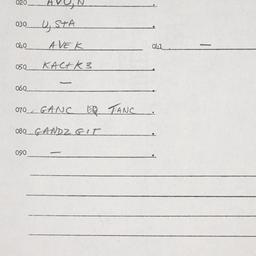 020 AVO, N .
030 U, STA .
040 AVEK 041 —
050 KACHK3 .
060 — .
070 GANC TANC .
080 GANDZ GIT .
090 — .